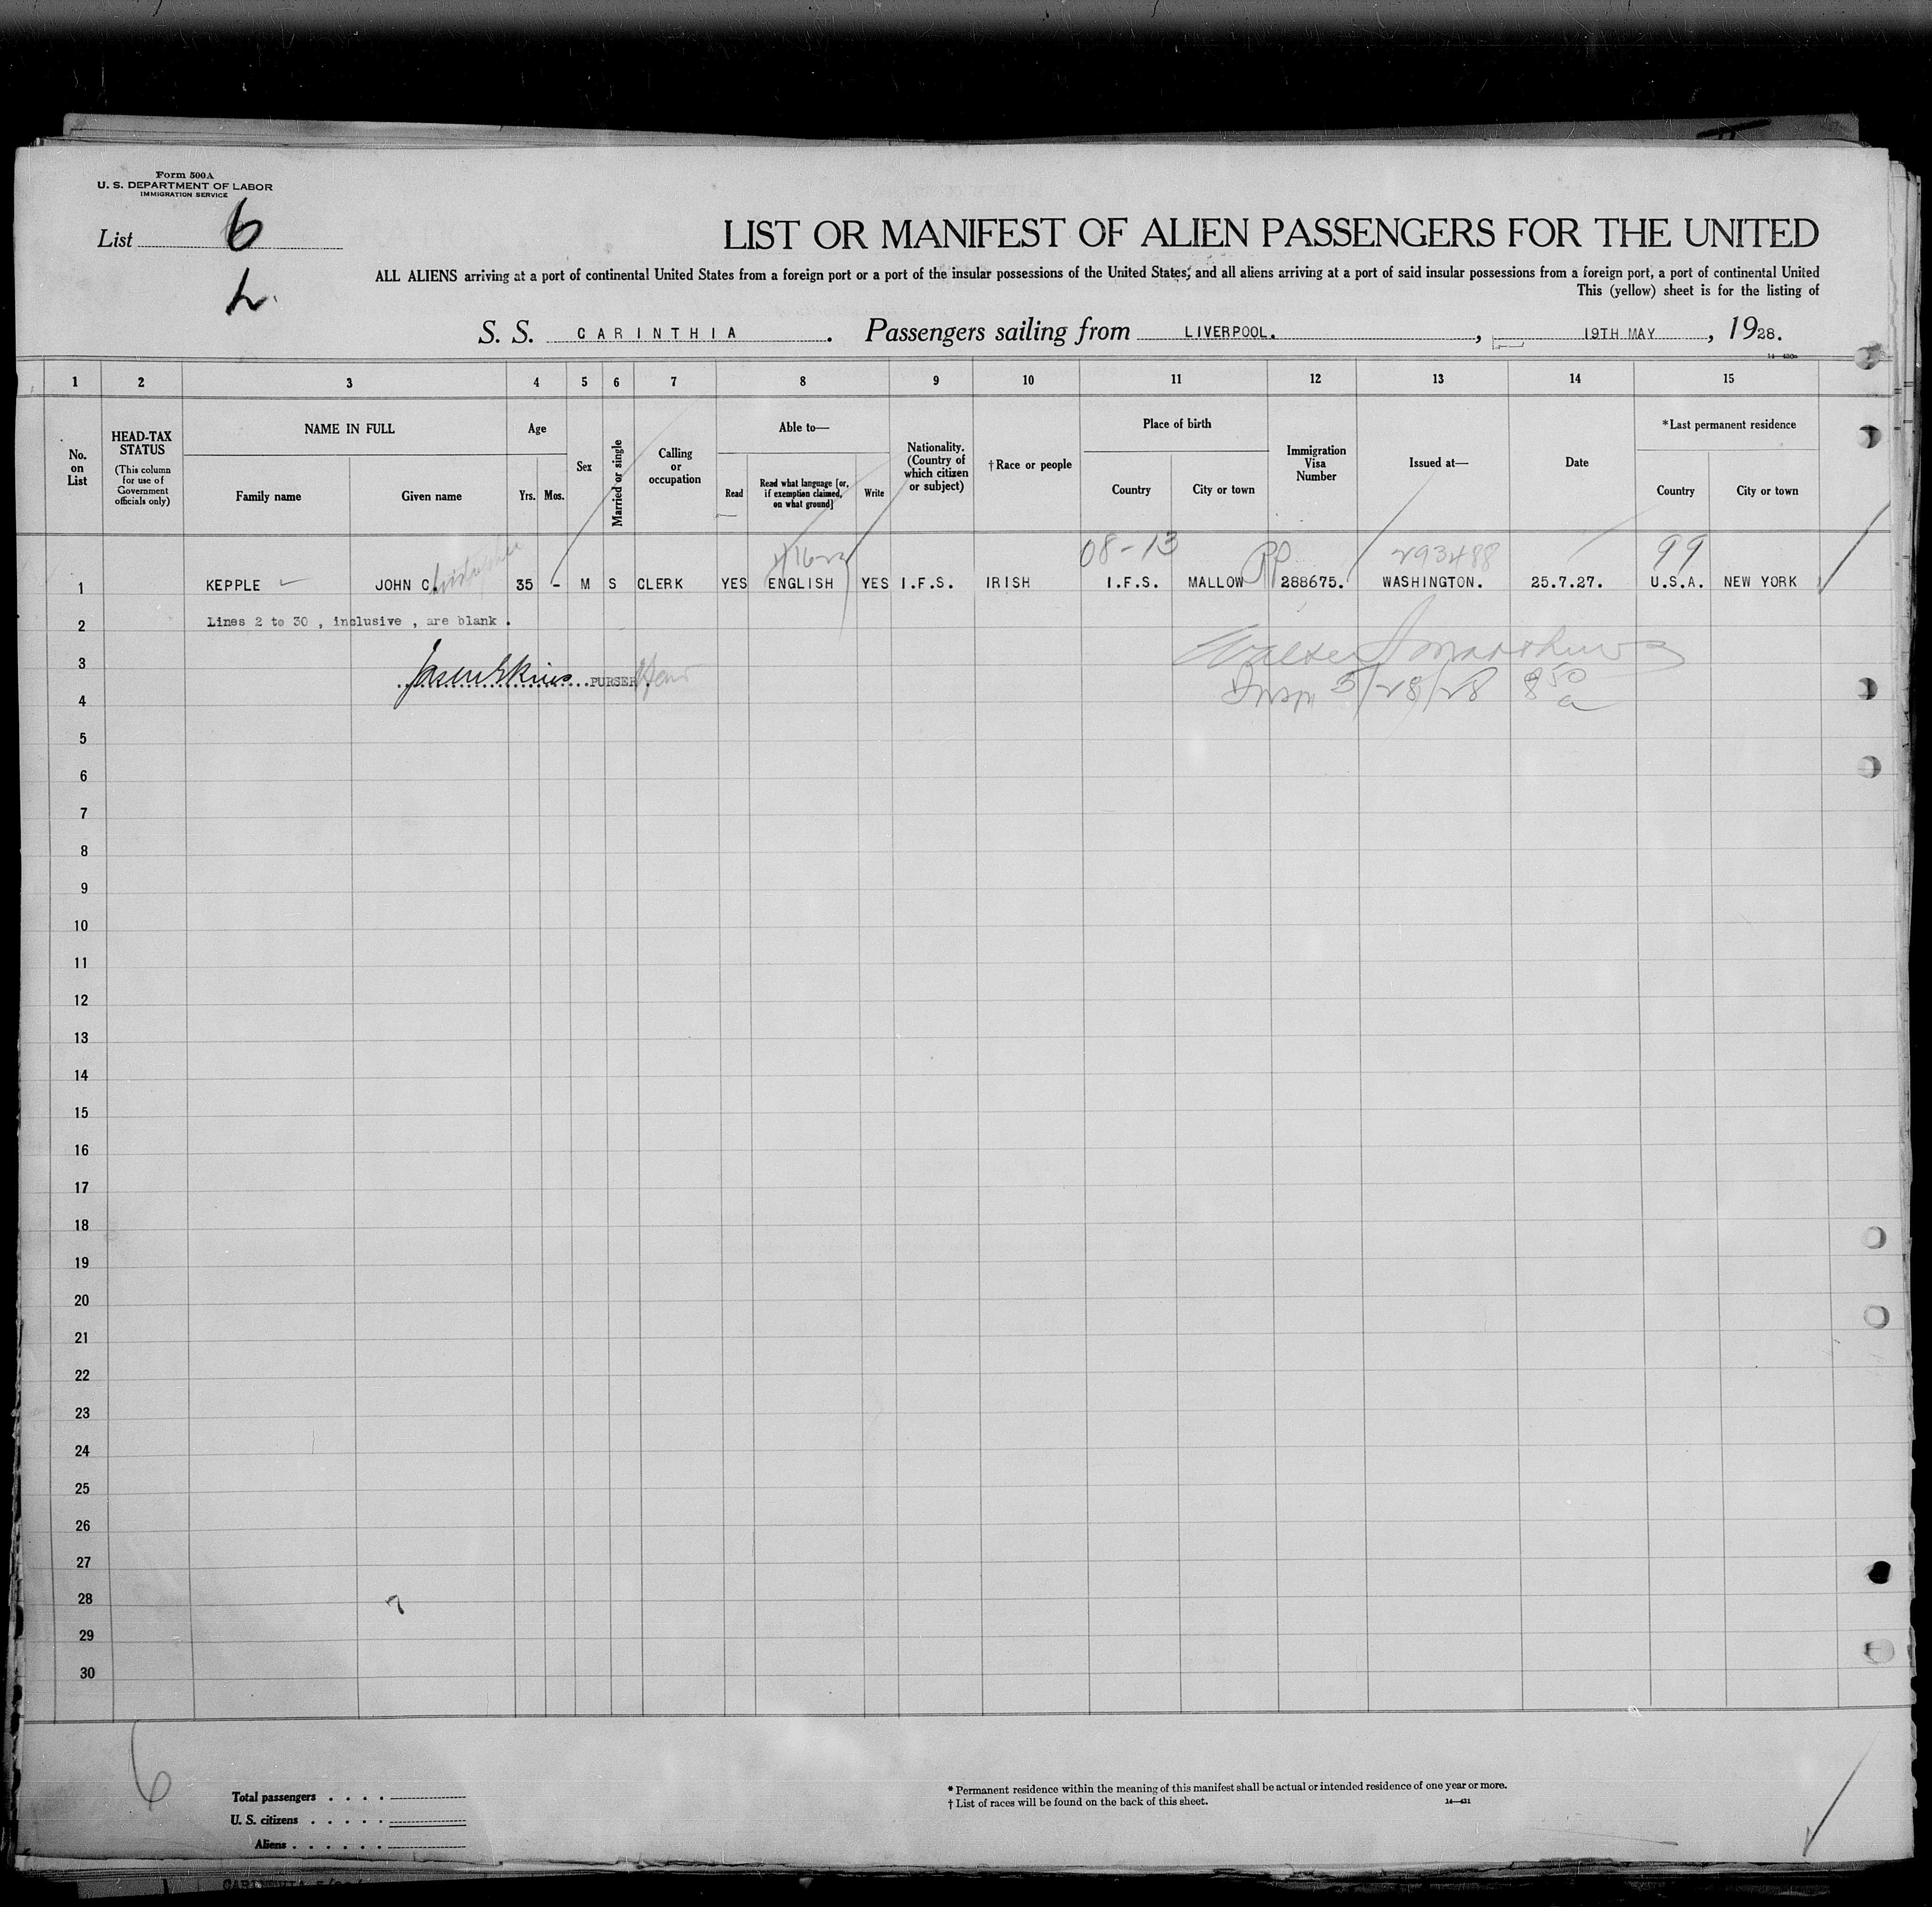 Form 500A
U. S. DEPARTMENT OF LABOR
IMMIGRATION SERVICE
List 6
LIST OR MANIFEST OF ALIEN PASSENGERS FOR THE UNITED
ALL ALIENS arriving at a port of continental United States from a foreign port or a port of the insular possessions of the United States, and all aliens arriving at a port of said insular possessions from a foreign port, a port of continental United
This (yellow) sheet is for the listing of
S. S. CARINTHIA. Passengers sailing from LIVERPOOL., 19TH MAY, 1928.
14—430a
1 2 3 4 5 6 7 8 9 10 11 12 13 14 15
No. on List
HEAD-TAX STATUS
(This column for use of Government officials only)
NAME IN FULL
Family name
Given name
Age
Yrs. Mos.
Sex
Married or single
Calling or occupation
Able to—
Read
Read what language [or, if exemption claimed, on what ground]
Write
Nationality. (Country of which citizen or subject)
†Race or people
Place of birth
Country
City or town
Immigration Visa Number
Issued at—
Date
*Last permanent residence
Country
City or town
08-13 293488 99
1 KEPPLE JOHN C. 35 - M S CLERK YES ENGLISH YES I.F.S. IRISH I.F.S. MALLOW PP 288675. WASHINGTON. 25.7.27. U.S.A. NEW YORK
2 Lines 2 to 30, inclusive, are blank.
Walter Matthews
3 PURSER
Insp 5/28/28 8 50 a
4
5
6
7
8
9
10
11
12
13
14
15
16
17
18
19
20
21
22
23
24
25
26
27
28
29
30
6
Total passengers . . . .
U. S. citizens . . . . .
Aliens . . . . . .
* Permanent residence within the meaning of this manifest shall be actual or intended residence of one year or more.
† List of races will be found on the back of this sheet.
14—431